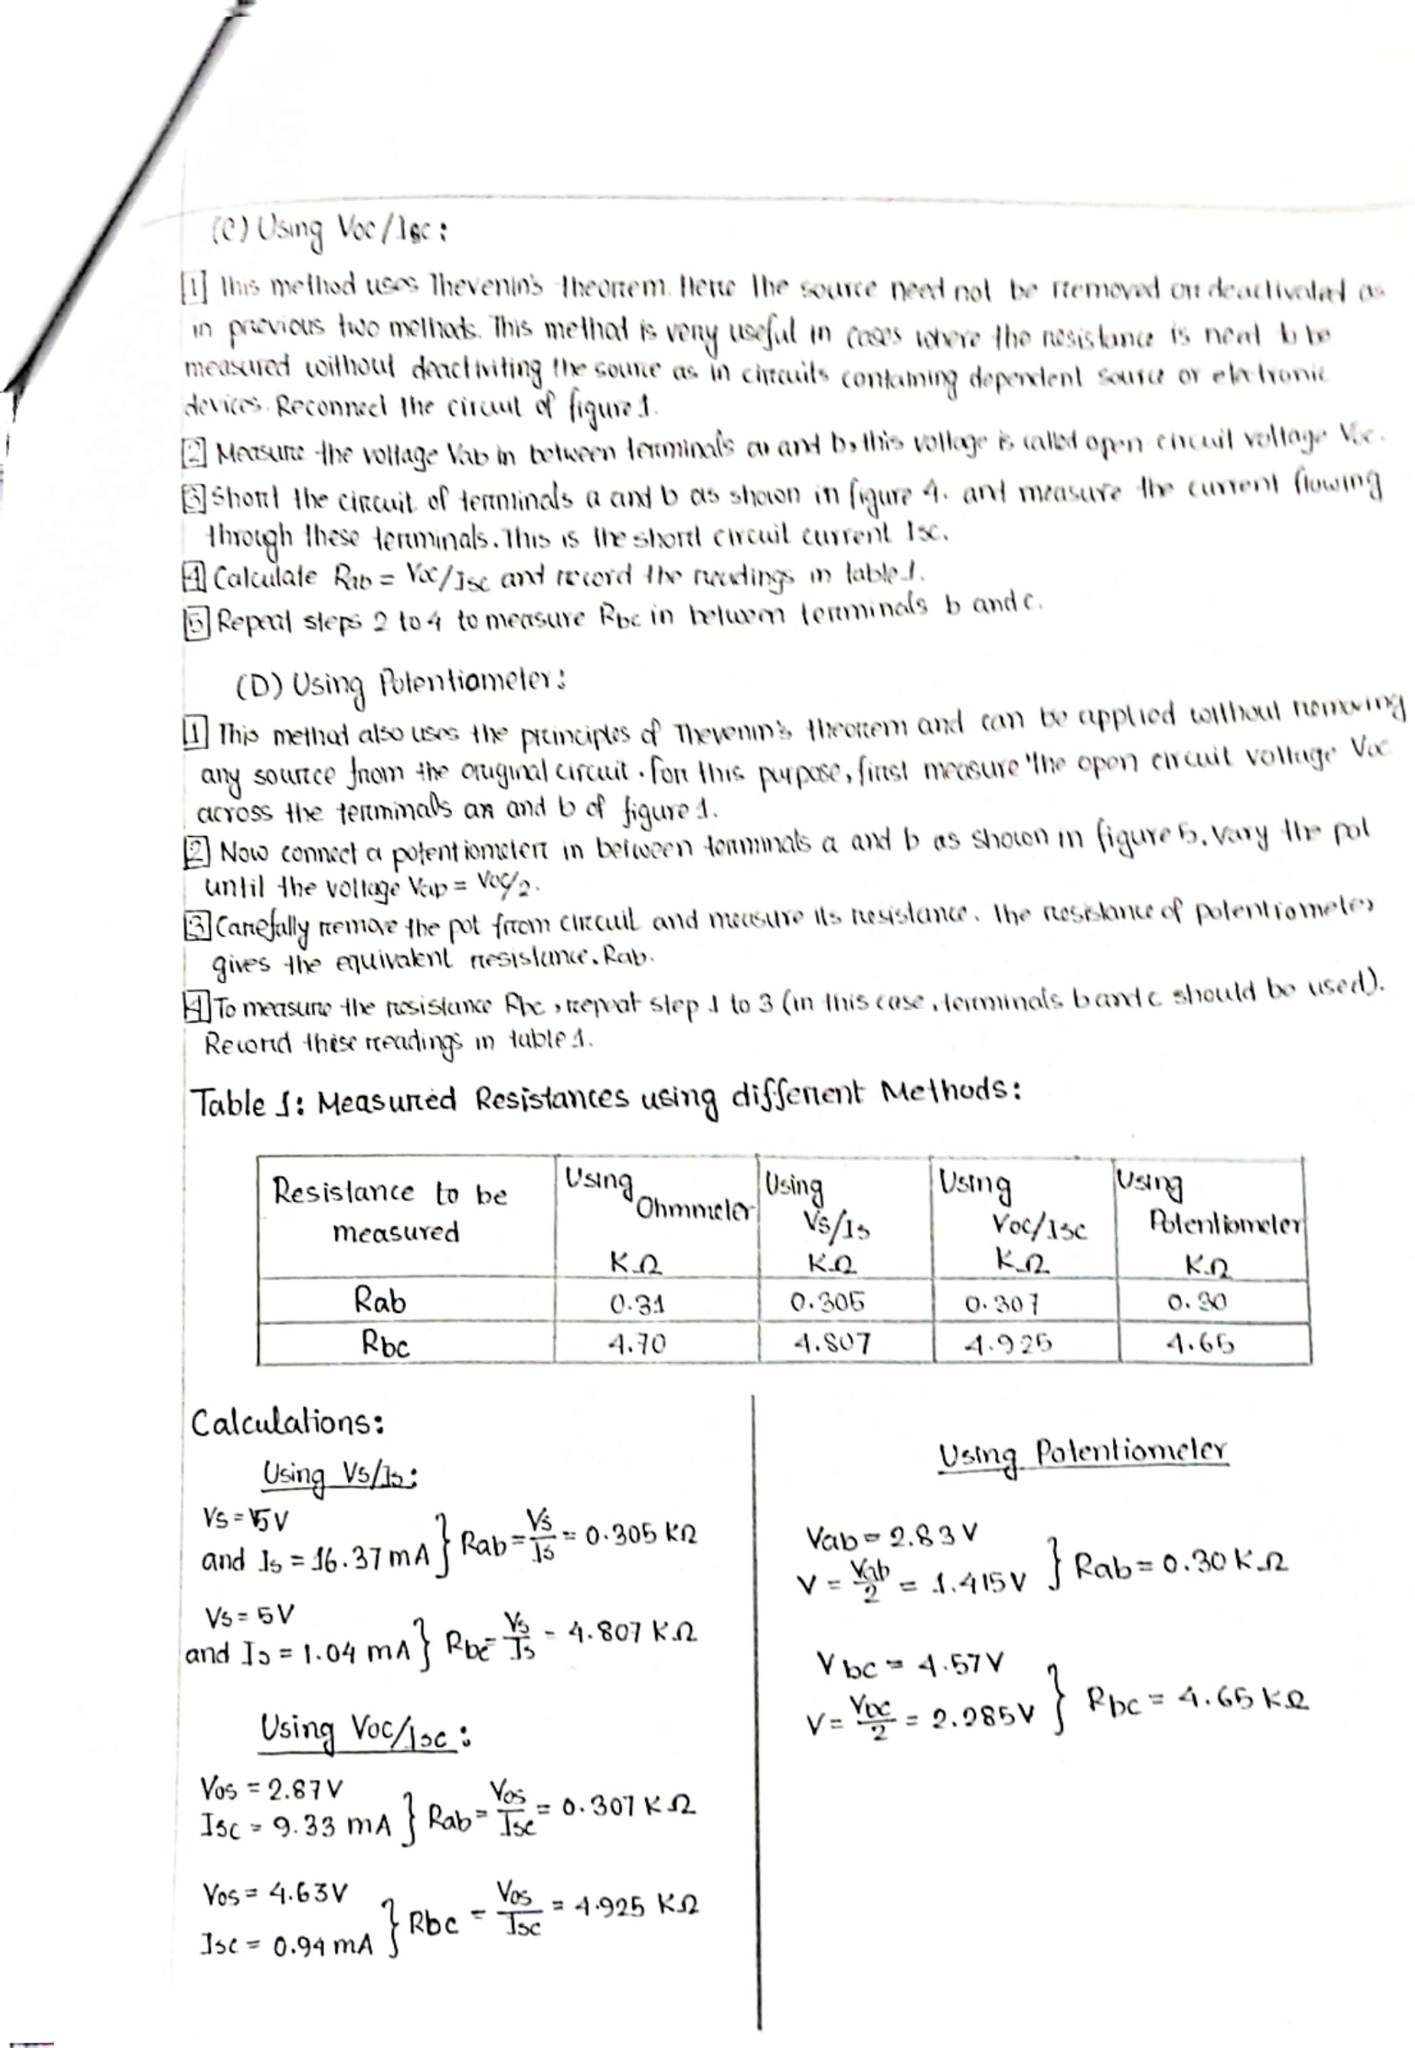 (C) Using Voc/Isc:
1 This method uses Thevenin's theorem. Here the source need not be removed or deactivated as
in previous two methods. This method is very useful in cases where the resistance is need to be
measured without deactiviting the source as in circuits containing dependent source or electronic
devices. Reconnect the circuit of figure 1.
2 Measure the voltage Vab in between terminals a and b, this voltage is called open circuit voltage Voc.
3 Short the circuit of terminals a and b as shown in figure 4. and measure the current flowing
through these terminals. This is the short circuit current Isc.
4 Calculate Rab = Voc/Isc and record the readings in table 1.
5 Repeat steps 2 to 4 to measure Rbc in between terminals b and c.
(D) Using Potentiometer:
1 This method also uses the principles of Thevenin's theorem and can be applied without removing
any source from the original circuit. For this purpose, first measure the open circuit voltage Voc
across the terminals a and b of figure 1.
2 Now connect a potentiometer in between terminals a and b as shown in figure 5. Vary the pot
until the voltage Vab = Voc/2.
3 Carefully remove the pot from circuit and measure its resistance. The resistance of potentiometer
gives the equivalent resistance. Rab.
4 To measure the resistance Rbc, repeat step 1 to 3 (in this case, terminals b and c should be used).
Record these readings in table 1.
Table 1: Measured Resistances using different Methods:
Resistance to be measured Using Ohmmeter KΩ Using Vs/Is KΩ Using Voc/Isc KΩ Using Potentiometer KΩ
Rab 0.31 0.305 0.307 0.30
Rbc 4.70 4.807 4.925 4.65
Calculations:
Using Vs/Is:
Vs = 5V
and Is = 16.37 mA } Rab = Vs/Is = 0.305 KΩ
Vs = 5V
and Is = 1.04 mA } Rbc = Vs/Is = 4.807 KΩ
Using Voc/Isc:
Vos = 2.87 V
Isc = 9.33 mA } Rab = Vos/Isc = 0.307 KΩ
Vos = 4.63V
Isc = 0.94 mA } Rbc = Vos/Isc = 4.925 KΩ
Using Potentiometer
Vab = 2.83 V
V = Vab/2 = 1.415V } Rab = 0.30 KΩ
Vbc = 4.57V
V = Vbc/2 = 2.285V } Rbc = 4.65 KΩ